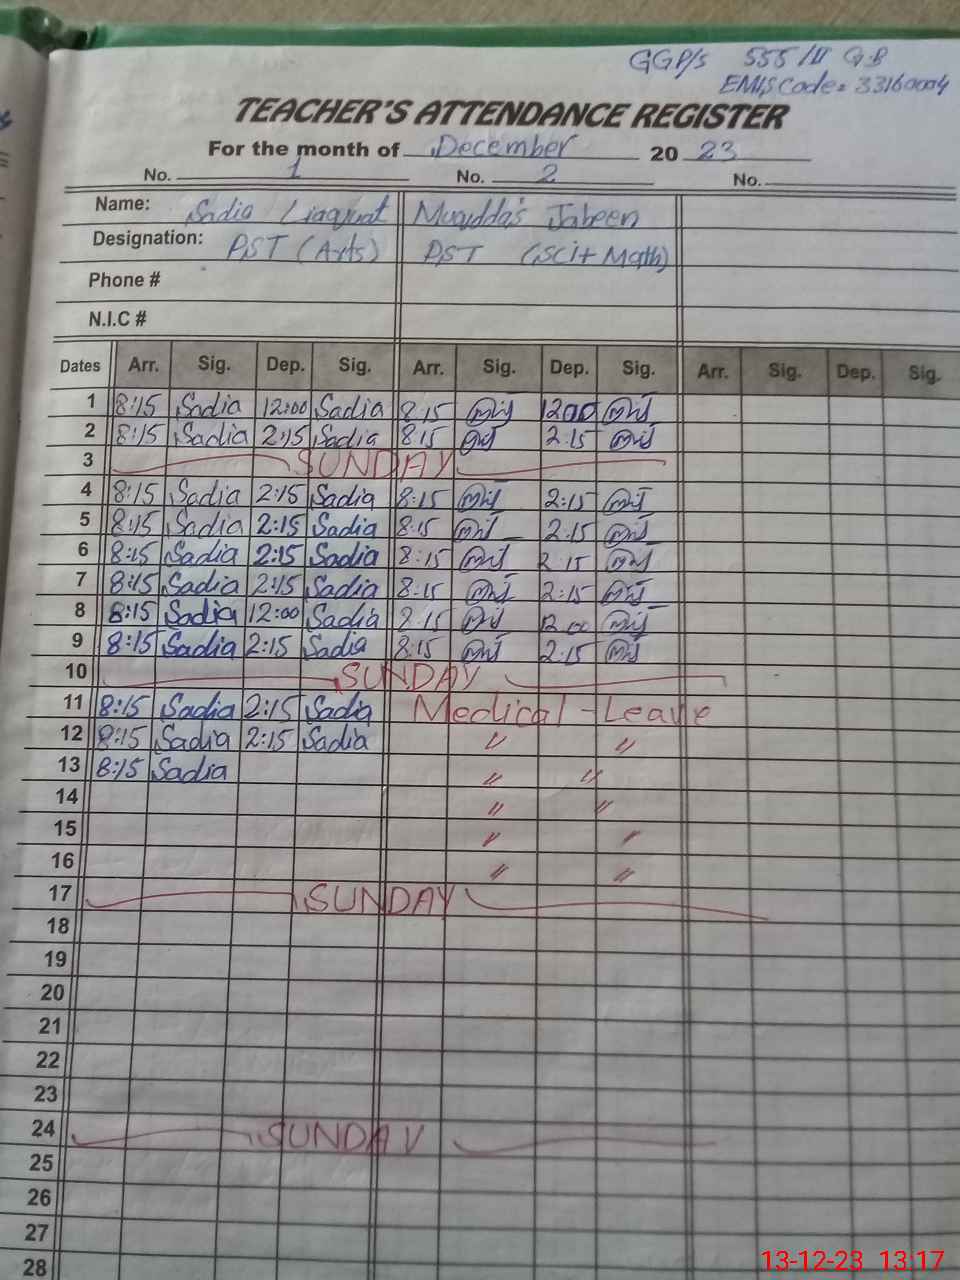 GGP/S 555/II GB
EMIS Code = 33160004
TEACHER'S ATTENDANCE REGISTER
For the month of December 20 23
No. 1 No. 2 No.
Name: Sadia Liaquat Muqddas Jabeen
Designation: PST (Arts) PST (Sci+Math)
Phone #
N.I.C #
Dates Arr. Sig. Dep. Sig. Arr. Sig. Dep. Sig. Arr. Sig. Dep. Sig.
1 8:15 Sadia 12:00 Sadia 8:15 1200
2 8:15 Sadia 2:15 Sadia 8:15 2:15
3 SUNDAY
4 8:15 Sadia 2:15 Sadia 8:15 2:15
5 8:15 Sadia 2:15 Sadia 8:15 2:15
6 8:15 Sadia 2:15 Sadia 8:15 2:15
7 8:15 Sadia 2:15 Sadia 8:15 2:15
8 8:15 Sadia 12:00 Sadia 8:15 12:00
9 8:15 Sadia 2:15 Sadia 8:15 2:15
10 SUNDAY
11 8:15 Sadia 2:15 Sadia Medical - Leave
12 8:15 Sadia 2:15 Sadia " "
13 8:15 Sadia " "
14 " "
15 " "
16 " "
17 SUNDAY
18
19
20
21
22
23
24 SUNDAY
25
26
27
28
13-12-23 13:17